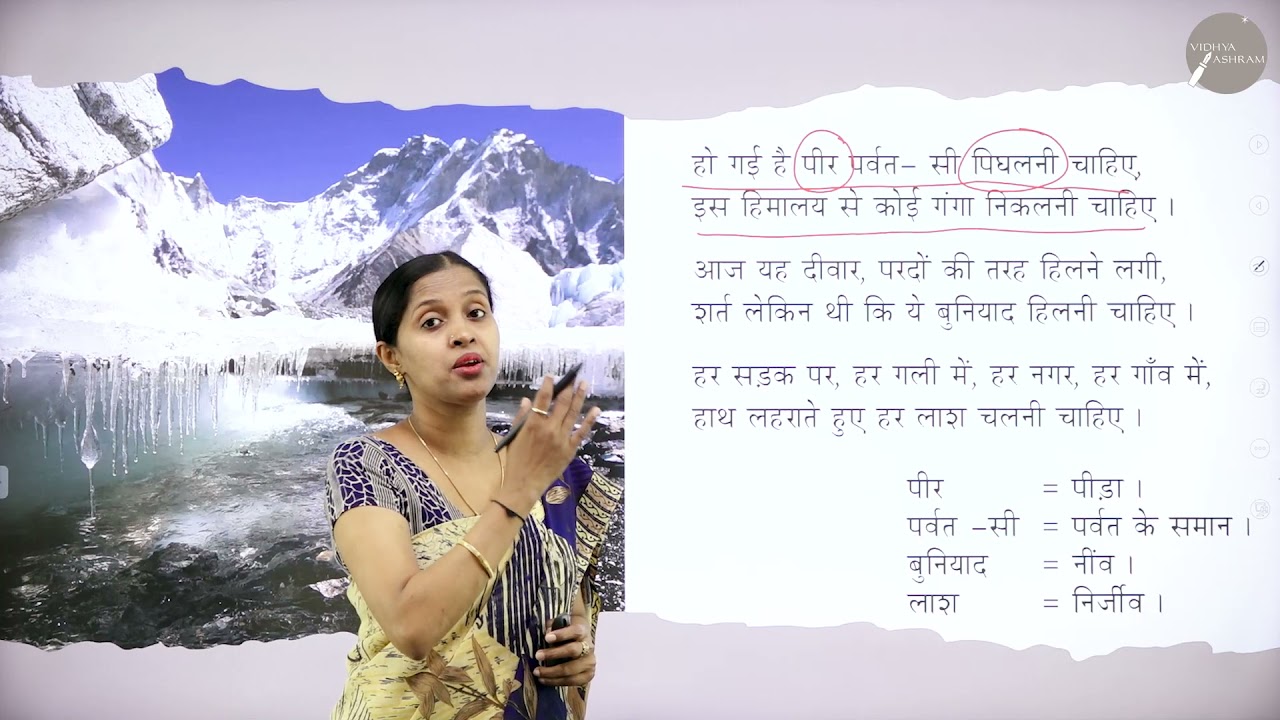 VIDHYA
ASHRAM
हो गई है पीर पर्वत- सी पिघलनी चाहिए,
इस हिमालय से कोई गंगा निकलनी चाहिए ।
आज यह दीवार, परदों की तरह हिलने लगी,
शर्त लेकिन थी कि ये बुनियाद हिलनी चाहिए ।
हर सड़क पर, हर गली में, हर नगर, हर गाँव में,
हाथ लहराते हुए हर लाश चलनी चाहिए ।
पीर = पीड़ा ।
पर्वत -सी = पर्वत के समान ।
बुनियाद = नींव ।
लाश = निर्जीव ।